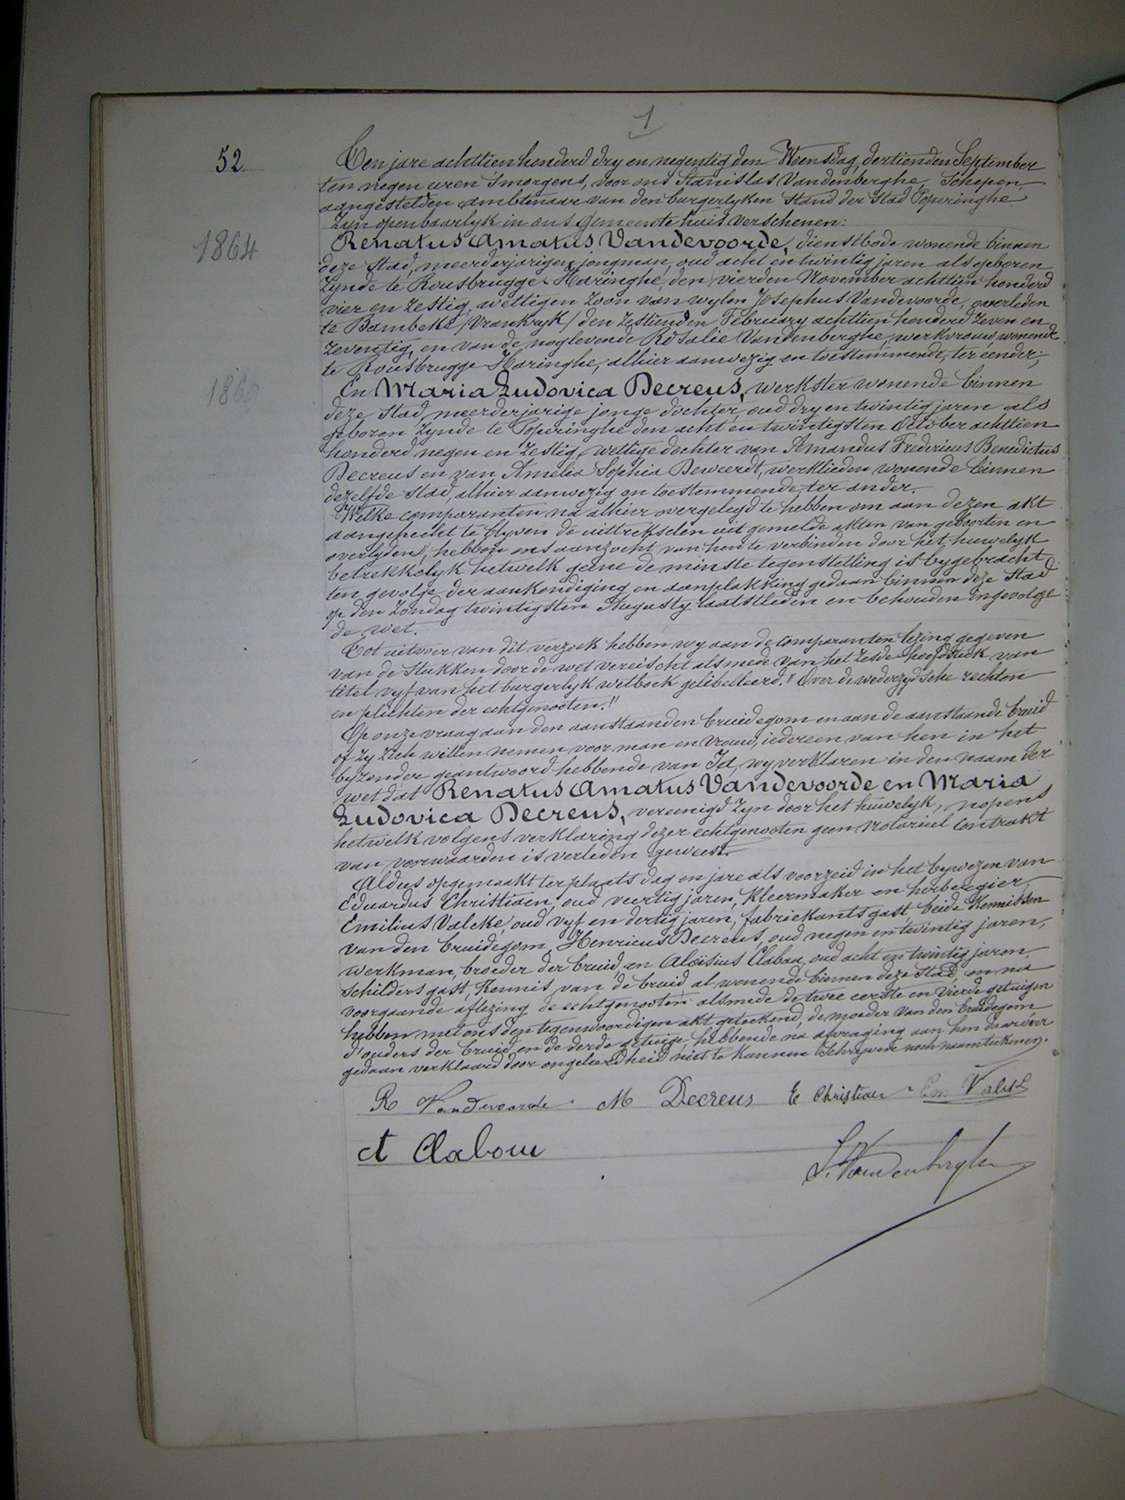 1
52
Ten jare achttien honderd dry en negentig den Wensdag, dertienden September
ten negen uren s'morgens, voor ons Stanislas Vandenberghe, Schepen
aangestelden ambtenaar van den burgerlyken Stand der Stad Poperinghe
zyn openbaarlyk in ons gemeente huis verschenen:
1864
Renatus Amatus Vandevoorde, dienstbode wonende binnen
deze Stad, meerderjarigen jongman, oud acht en twintig jaren als geboren
zynde te Rousbrugge-Haringhe, den vierden November achttien honderd
vier en zestig, wettigen zoon van wylen Josephus Vandevoorde, overleden
te Bambeke (Vrankryk) den zestienden February achttien honderd zeven en
zeventig, en van de noglevende Rosalie Vandenberghe, werkvrouw, wonende
te Rousbrugge-Haringhe, alhier aanwezig en toestemmende, ter eender;
En Maria Ludovica Decreus, werkster wonende binnen
deze Stad, meerderjarige jonge dochter, oud dry en twintig jaren als
geboren zynde te Poperinghe den acht en twintigsten October achttien
honderd negen en zestig, wettige dochter van Amandus Fredericus Benedictus
Decreus en van Amelia Sophia Deweerdt, werklieden wonende binnen
dezelfde Stad, alhier aanwezig en toestemmende, ter ander.
Welke comparanten na alhier overgelegd te hebben om aan dezen akt
aangehecht te blyven de uittrekselen uit gemelde akten van geboorten en
overlyden, hebben ons aanzocht van hen te verbinden door het huwelyk
betrekkelyk hetwelk geene de minste tegenstelling is bygebracht,
ten gevolge der aankondiging en aanplakking gedaan binnen deze Stad
op den Zondag twintigsten Augusty laatstleden en behouden ingevolge
de wet.
Tot uitvoer van dit verzoek hebben wy aan de comparanten lezing gegeven
van de stukken door de wet vereischt alsmede van het zesde hoofdstuk van
titel vyf van het burgerlyk wetboek gelibelleerd: "Over de wederzydsche rechten
en plichten der echtgenooten."
Op onze vraag aan den aanstaanden bruidegom en aan de aanstaande bruid
of zy zich willen nemen voor man en vrouw, iedereen van hen in het
byzonder geantwoord hebbende van Ja, wy verklaren in den naam der
wet dat Renatus Amatus Vandevoorde en Maria
Ludovica Decreus, vereenigd zyn door het huwelyk, nopens
hetwelk volgens verklaring dezer echtgenooten geen notarieel contrakt
van voorwaarden is verleden geweest.
Aldus opgemaakt ter plaats dag en jare als voorzeid in het bywezen van
Eduardus Christiaen, oud veertig jaren, kleermaker en herbergier,
Emilius Valcke, oud vyf en dertig jaren, fabriekants gast, beide kennissen
van den bruidegom, Henricus Decreus, oud negen en twintig jaren,
werkman, broeder der bruid en Aloisius Clabau, oud acht en twintig jaren,
schilders gast, kennis van de bruid, al wonende binnen deze Stad, en na
voorgaande aflezing de echtgenooten alsmede de twee eerste en vierde getuigen
hebben met ons den tegenwoordigen akt geteekend, de moeder van den bruidegom
d'ouders der bruid en de derde getuige, hebbende na afvraging aan hen daarover
gedaan verklaard door ongeleerdheid niet te kunnen schryven noch naamteekenen.
R Vandevoorde M Decreus E Christiaen Em Valcke
A Clabau
S. Vandenberghe